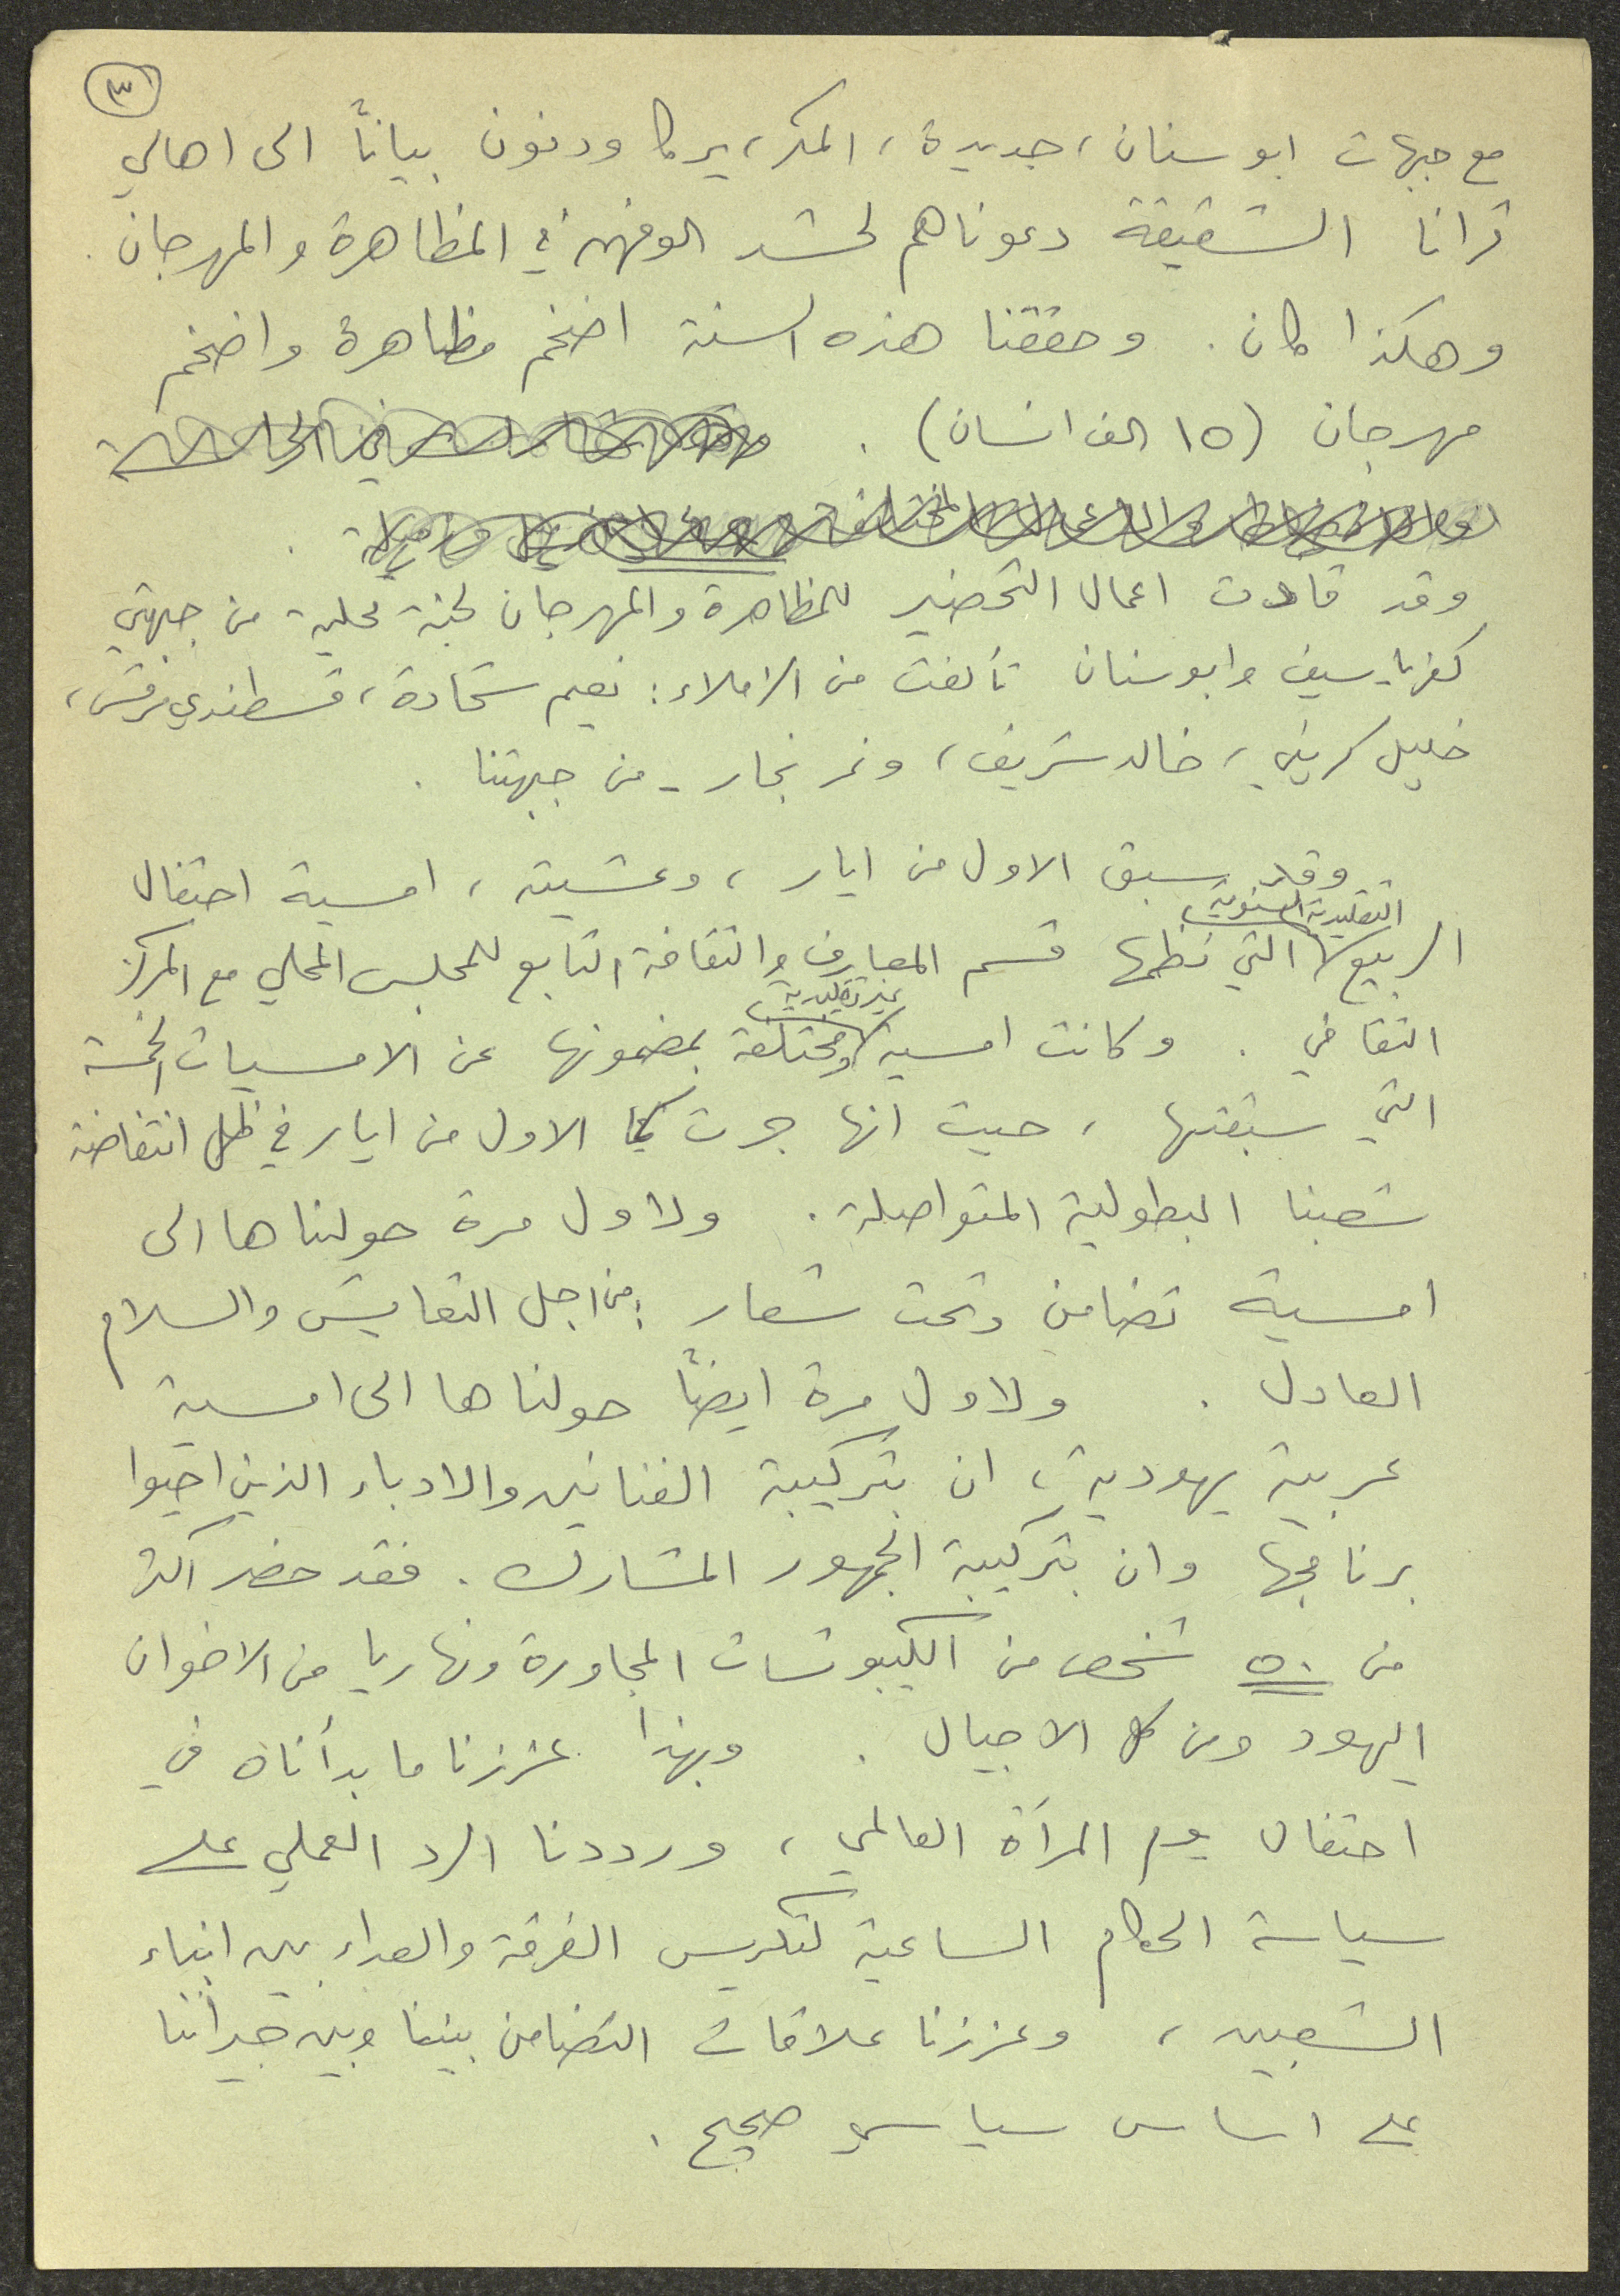 ٣
مع جبهات ابو سنان، جديدة، المكر، يركا ودنون بياناً الى اهالي
قرانا الشقيقة دعوناهم لحشد الوفهم في المظاهرة والمهرجان .
وهكذا كان . وحققنا هذه السنة اضخم مظاهرة واضخم
مهرجان (١٥ الف انسان) .
وقد قادت اعمال التحضير للمظاهرة والمهرجان لجنة محلية من جبهتي
كفرياسيف وابوسنان تألفت من الزملاء : نعيم شحادة، قسطندي مرقس،
خليل كريني، خالد شريف، ونمر نجار - من جبهتنا .
وقد سبق الاول من ايار، وعشيته، امسية احتفال
التقليدية السنوية
الربيع التي نظمها قسم المعارف والثقافة التابع للمجلس المحلي مع المركز
غير تقليدية
الثقافي . وكانت امسية ومختلفة بمضمونها عن الامسيات الخمسة
التي سبقتها، حيث انها جرت كما الاول من ايار في ظل انتفاضة
شعبنا البطولية المتواصلة . ولاول مرة حولناها الى
امسية تضامن وتحت شعار : من اجل التعايش والسلام
العادل . ولاول مرة ايضاً حولناها الى امسية
عربية يهودية، ان بتركيبة الفنانين والادباء الذين احيوا
برنامجها وان بتركيبة الجمهور المشارك . فقد حضر اكثر
من ٥٠ شخص من الكيبوتسات المجاورة ونهاريا من الاخوان
اليهود ومن كل الاجيال . وبهذا عززنا ما بدأناه في
احتفال يوم المرأة العالمي، ورددنا الرد العملي على
سياسة الحكام الساعية لتكريس الفرقة والعداء بين ابناء
الشعبين، وعززنا علاقات التضامن بيننا وبين جيراننا
على اساس سياسي صحيح .